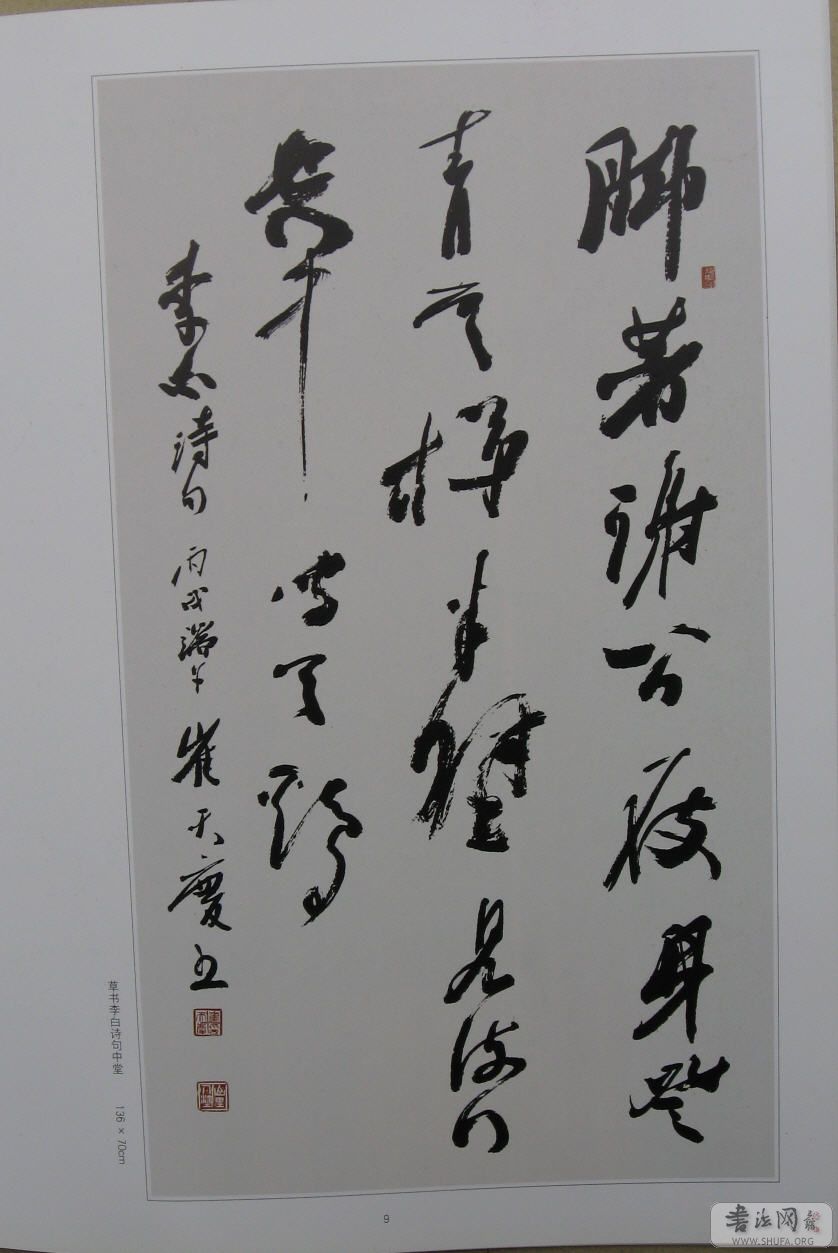 脚著謝公屐身登
青雲梯半壁見海日
空中聞天鷄
李白詩句 丙戌端午 崔天慶书
草书李白诗句中堂 136×70cm
9
书法网
WWW.SHUFA.ORG